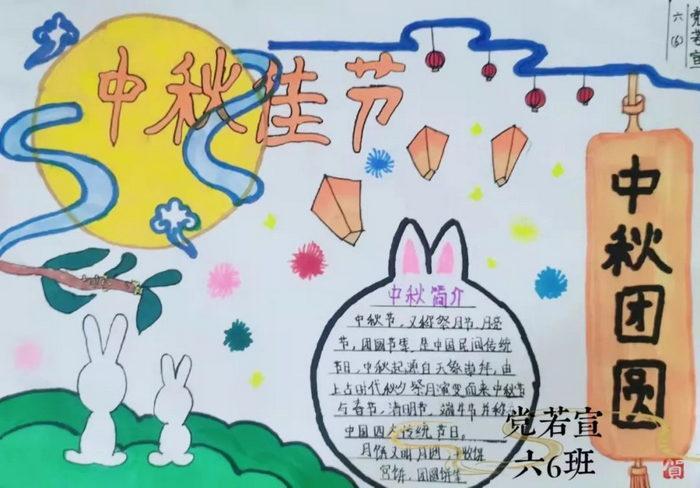 党若宣
六(6)
中秋佳节
中秋团圆
中秋简介
中秋节，又称祭月节、月夕
节，团圆节等，是中国民间传统
节日，中秋起源自天象崇拜，由
上古时代秋夕祭月演变而来中秋节
与春节、清明节、端午节并称
中国四大传统节日。
月饼又叫月团、
宫饼、团圆饼
党若宣
六6班